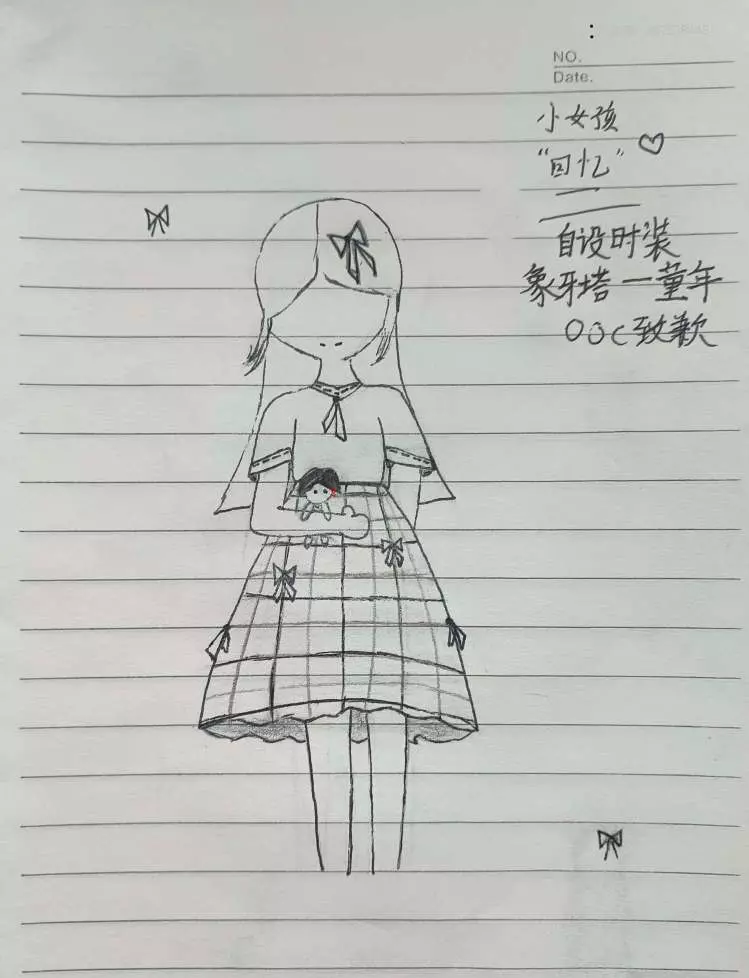 NO.
Date.
小女孩
“回忆”
自设时装
象牙塔一童年
OOC致歉